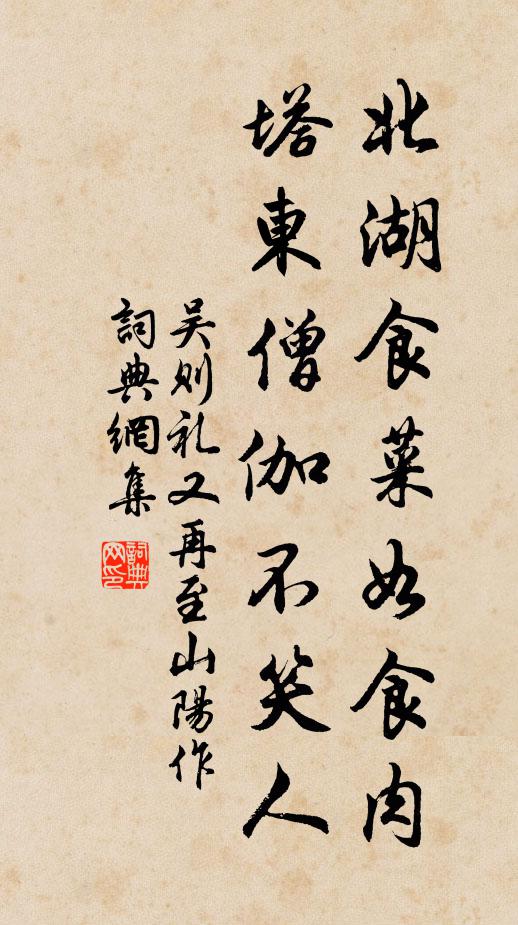 北湖食菜如食肉
塔東僧伽不笑人
吴则礼又再至山陽作
詞典網集
詞典網印